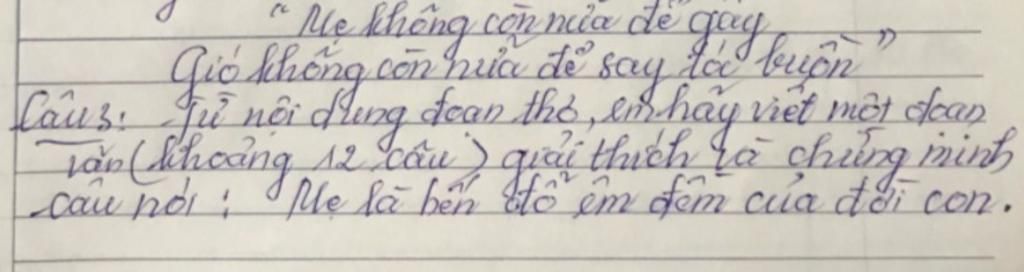 “Mẹ không còn nữa để gầy
Gió không còn nữa để say tóc buồn”
Câu 3: Từ nội dung đoạn thơ, em hãy viết một đoạn
văn (khoảng 12 câu) giải thích và chứng minh
câu nói: Mẹ là bến đỗ êm đềm của đời con.